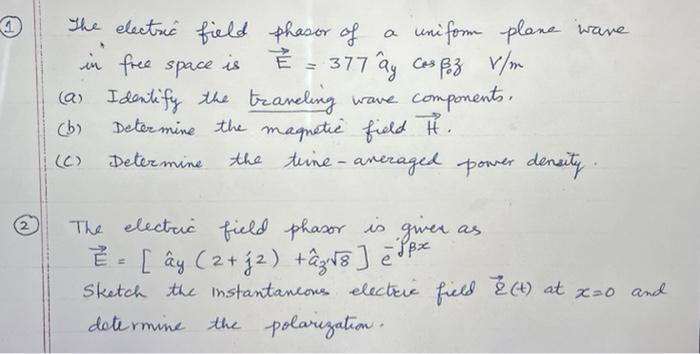 ① The electric field phasor of a uniform plane wave
in free space is E⃗ = 377 â_y Cos β₀z V/m
(a) Identify the traveling wave components.
(b) Determine the magnetic field H⃗.
(c) Determine the time-averaged power density.
② The electric field phasor is given as
E⃗ = [ â_y (2+j2) + â_z√8 ] e^-jβx
Sketch the instantaneous electric field ℰ⃗(t) at x=0 and
determine the polarization.